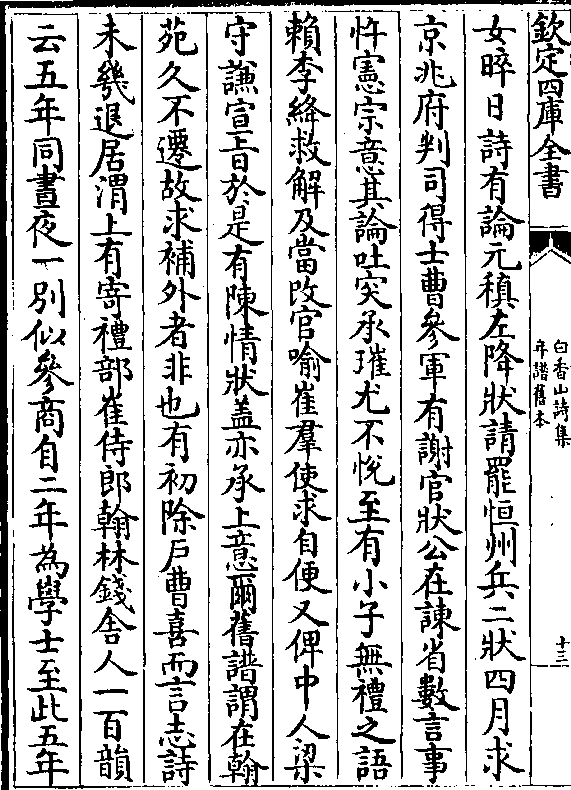 欽定四庫全書
白香山詩集
年譜舊本
十三
女晬日詩有論元稹左降狀請罷恒州兵二狀四月求
京兆府判司得士曹參軍有謝官狀公在諫省數言事
忤憲宗意其論吐突承璀尤不恱至有小子無禮之語
賴李絳救解及當改官喻崔羣使求自便又俾中人梁
守謙宣旨於是有陳情狀蓋亦承上意爾舊譜謂在翰
苑久不遷故求補外者非也有初除戶曹喜而言志詩
未幾退居渭上有寄禮部崔侍郎翰林錢舍人一百韻
云五年同晝夜一別似參商自二年為學士至此五年